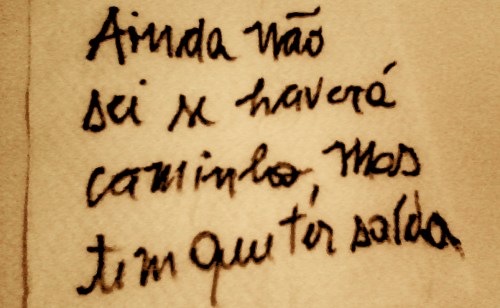 Ainda não
sei se haverá
caminho, mas
tem que ter saída